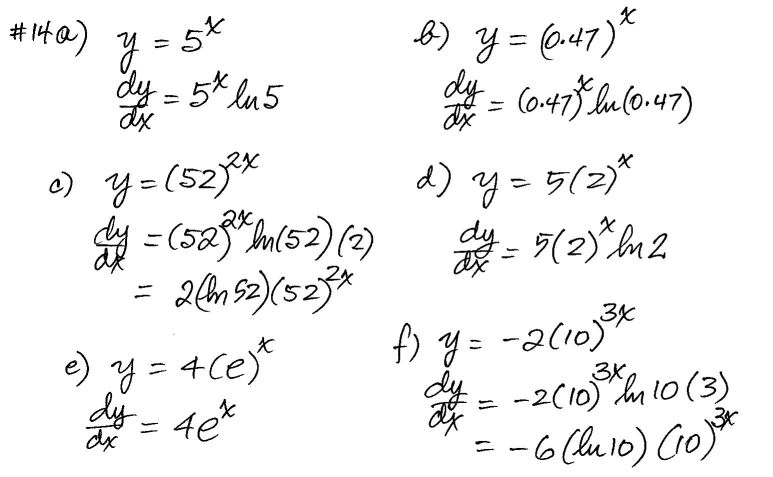 #14 a) y = 5^x
dy/dx = 5^x ln 5
b) y = (0.47)^x
dy/dx = (0.47)^x ln(0.47)
c) y = (52)^2x
dy/dx = (52)^2x ln(52) (2)
= 2(ln 52)(52)^2x
d) y = 5(2)^x
dy/dx = 5(2)^x ln 2
e) y = 4(e)^x
dy/dx = 4e^x
f) y = -2(10)^3x
dy/dx = -2(10)^3x ln 10 (3)
= -6 (ln 10) (10)^3x